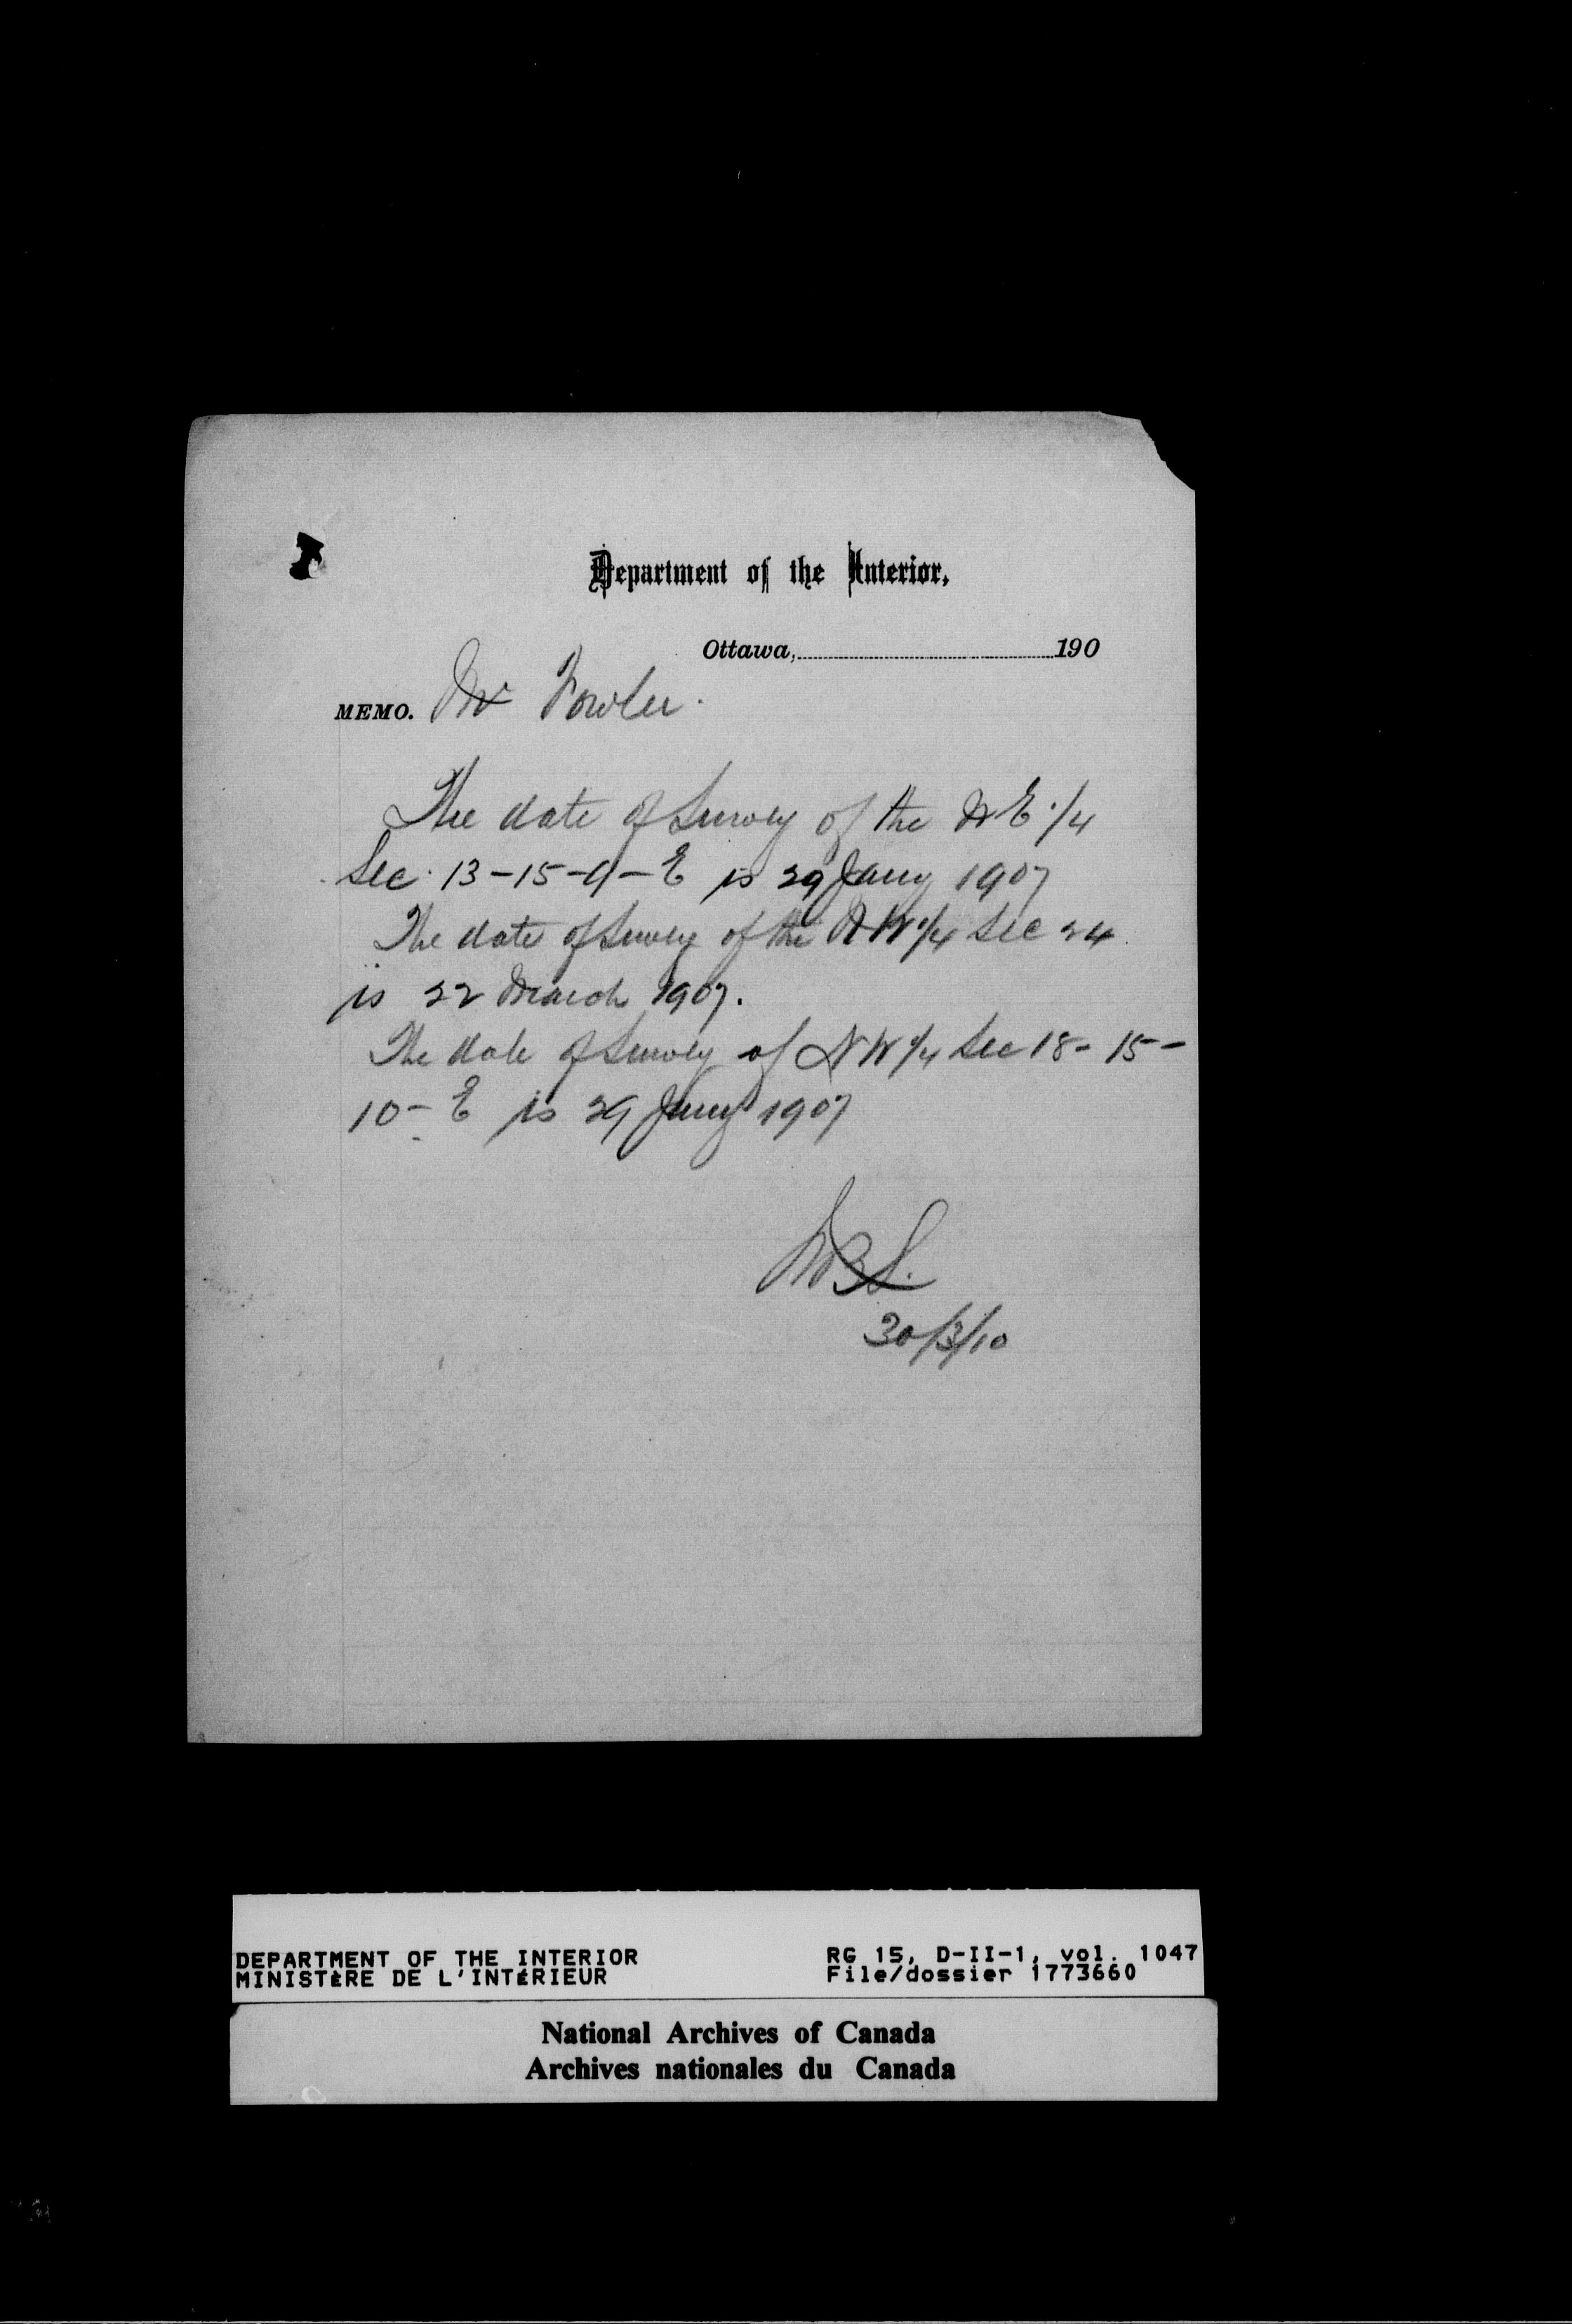 Department of the Interior,
Ottawa, 190
MEMO. Mr Fowler.
The date of Survey of the NE 1/4
Sec. 13-15-9-E is 29 Jany 1907
The date of Survey of the NW 1/4 Sec 24
is 22 March 1907.
The date of Survey of NW 1/4 Sec 18-15-
10-E is 29 Jany 1907
30/3/10
DEPARTMENT OF THE INTERIOR RG 15, D-II-1, vol. 1047
MINISTÈRE DE L'INTÉRIEUR File/dossier 1773660
National Archives of Canada
Archives nationales du Canada